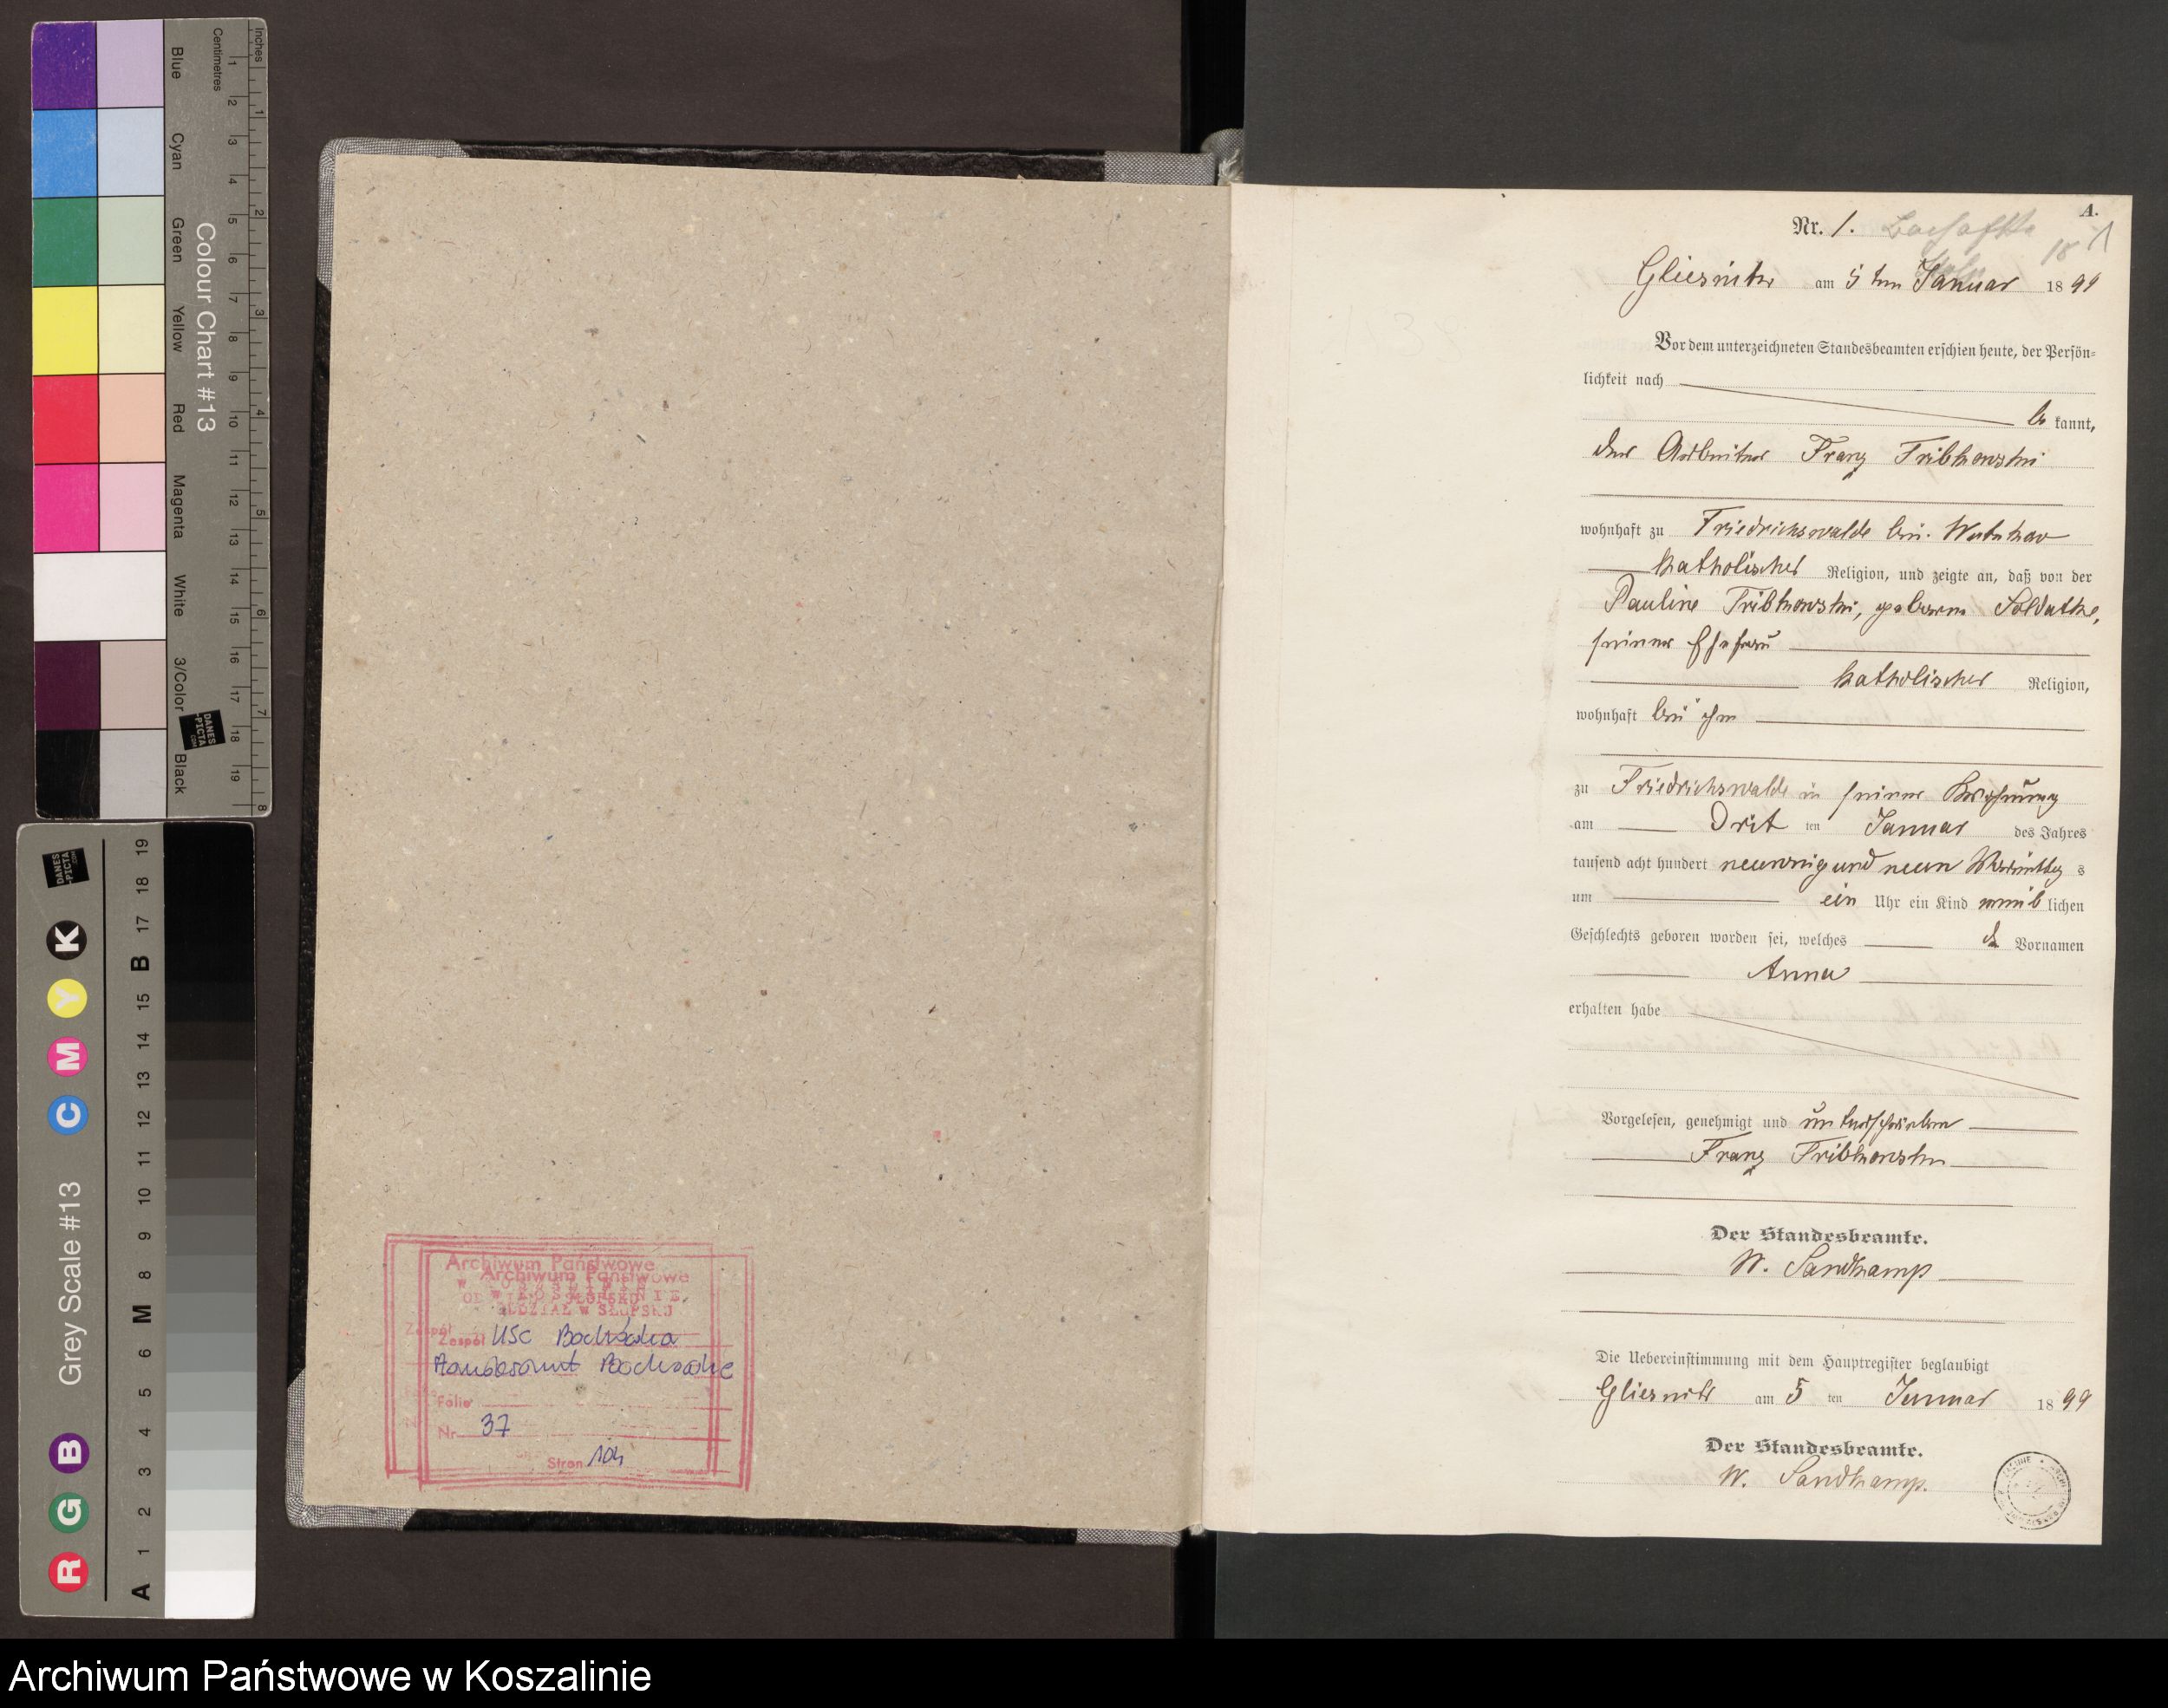 Inches
Centimetres
Colour Chart #13
Blue
Cyan
Green
Yellow
Red
Magenta
White
3/Color
Black
1 2 3 4 5 6 7 8 9 10 11 12 13 14 15 16 17 18 19
1 2 3 4 5 6 7 8
DANES
-PICTA
.COM
Grey Scale #13
R G B C M Y K
A 1 2 3 4 5 6 M 8 9 10 11 12 13 14 15 B 17 18 19
Archiwum Państwowe
ODDZIAŁ W SŁUPSKU
Zespół USC Bochówka
Standesamt Bochowke
Folio
Nr. 37
Stron 104
A.
Nr. 1.
1
am 5ten Januar 1899
Vor dem unterzeichneten Standesbeamten erschien heute, der Persön=
lichkeit nach
be kannt,
der Arbeiter Franz
wohnhaft zu Friedrichswalde bei
katholischer Religion, und zeigte an, daß von der
Pauline geborene
seiner Ehefrau
katholischer Religion,
wohnhaft bei ihm
zu Friedrichswalde in seiner Wohnung
am Drit ten Januar des Jahres
tausend acht hundert neunzig und neun Vormittag s
um ein Uhr ein Kind weib lichen
Geschlechts geboren worden sei, welches den Vornamen
Anna
erhalten habe
Vorgelesen, genehmigt und unterschrieben
Franz
Der Standesbeamte.
W. Sandkamp
Die Uebereinstimmung mit dem Hauptregister beglaubigt
am 5 ten Januar 1899
Der Standesbeamte.
W. Sandkamp.
Archiwum Państwowe w Koszalinie